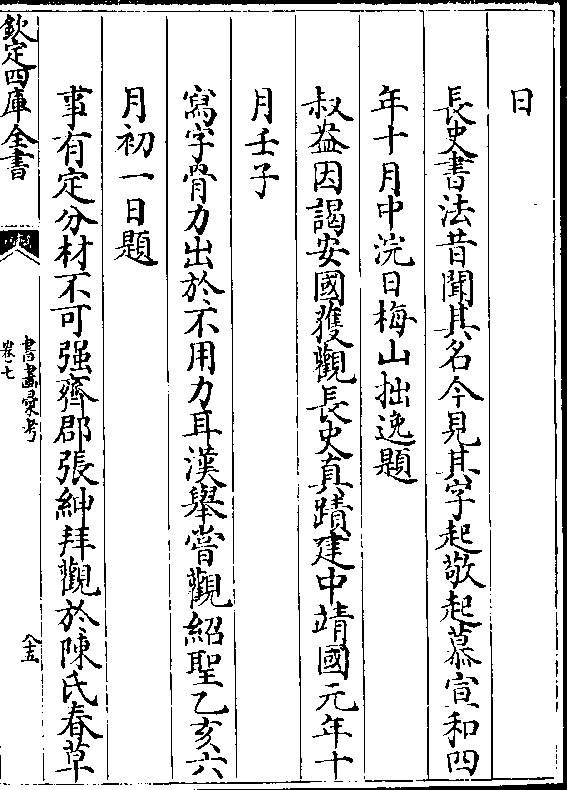 日
長史書法昔聞其名今見其字起敬起慕宣和四
年十月中浣日梅山拙逸題
叔益因謁安國獲觀長史真蹟建中靖國元年十
月壬子
寫字骨力出於不用力耳漢舉嘗觀紹聖乙亥六
月初一日題
事有定分材不可强齊郡張紳拜觀於陳氏春草
欽定四庫全書
書畫彙考
卷七